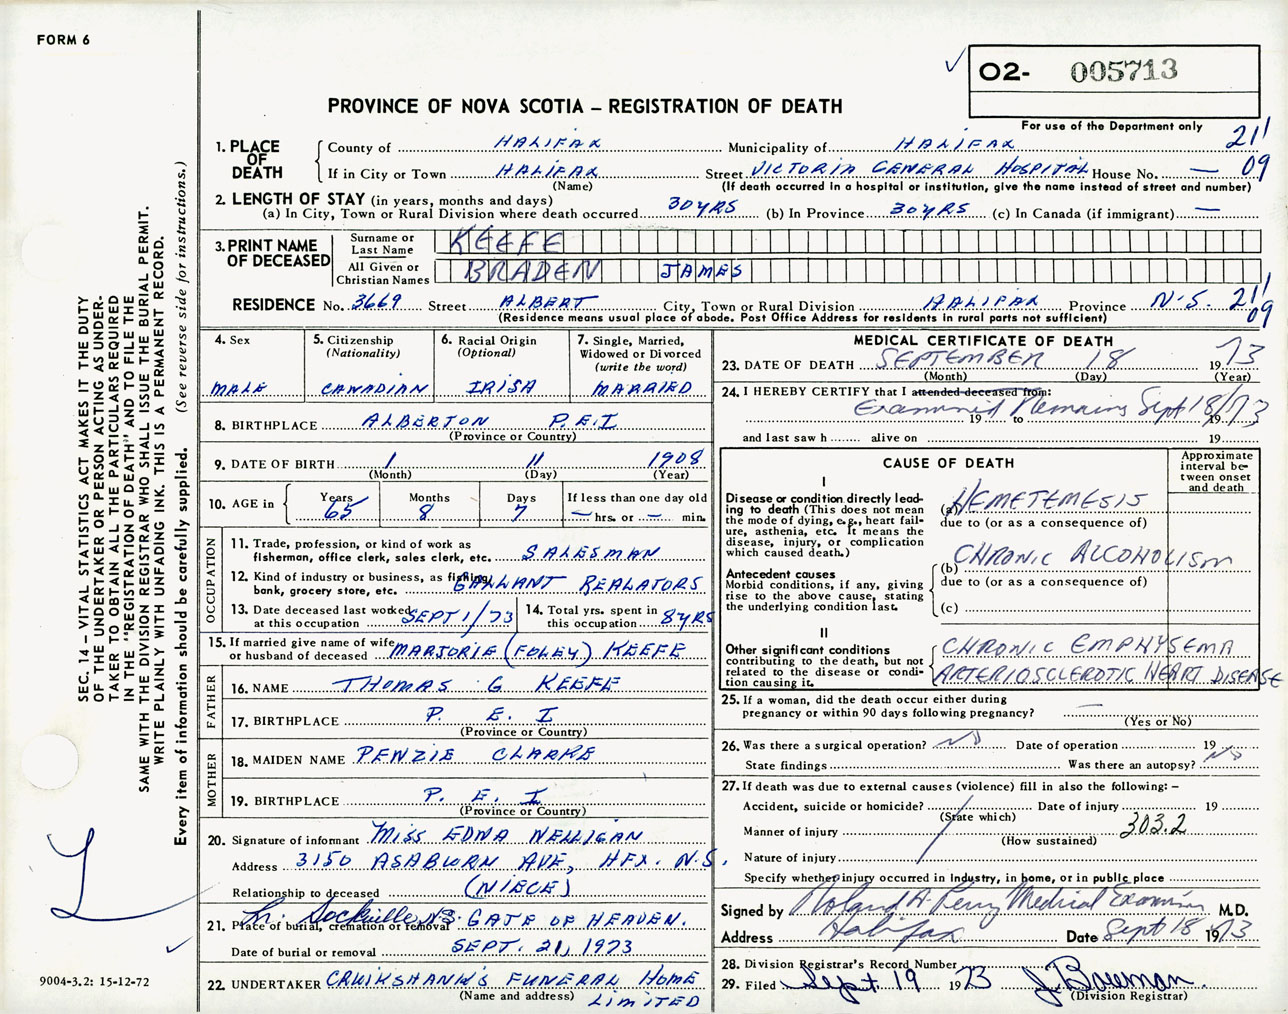 FORM 6
O2- 005713
PROVINCE OF NOVA SCOTIA – REGISTRATION OF DEATH
For use of the Department only
1. PLACE OF DEATH
County of HALIFAX Municipality of HALIFAX 21
If in City or Town HALIFAX Street VICTORIA GENERAL HOSPITAL House No. — 09
(Name) (If death occurred in a hospital or institution, give the name instead of street and number)
2. LENGTH OF STAY (in years, months and days)
(a) In City, Town or Rural Division where death occurred 30 YRS (b) In Province 30 YRS (c) In Canada (if immigrant) —
3. PRINT NAME OF DECEASED
Surname or Last Name KEEFE
All Given or Christian Names BRADEN JAMES
RESIDENCE No. 3669 Street ALBERT City, Town or Rural Division HALIFAX Province N.S. 21
(Residence means usual place of abode. Post Office Address for residents in rural parts not sufficient) 09
4. Sex
MALE
5. Citizenship
(Nationality)
CANADIAN
6. Racial Origin
(Optional)
IRISH
7. Single, Married,
Widowed or Divorced
(write the word)
MARRIED
8. BIRTHPLACE ALBERTON P.E.I
(Province or Country)
9. DATE OF BIRTH 1 11 1908
(Month) (Day) (Year)
10. AGE in
Years Months Days If less than one day old
65 8 7 — hrs. or — min.
OCCUPATION
11. Trade, profession, or kind of work as
fisherman, office clerk, sales clerk, etc. SALESMAN
12. Kind of industry or business, as fishing,
bank, grocery store, etc. GALLANT REALATORS
13. Date deceased last worked
at this occupation SEPT 1/73
14. Total yrs. spent in
this occupation 8 YRS
15. If married give name of wife
or husband of deceased MARJORIE (FOLEY) KEEFE
FATHER
16. NAME THOMAS G KEEFE
17. BIRTHPLACE P. E. I
(Province or Country)
MOTHER
18. MAIDEN NAME PENZIE CLARKE
19. BIRTHPLACE P. E. I
(Province or Country)
20. Signature of informant MISS EDNA NELLIGAN
Address 3150 ASABURN AVE, HFX. N.S.
Relationship to deceased (NIECE)
21. Place of burial, cremation or removal Lr. Sackville N.S. GATE OF HEAVEN.
Date of burial or removal SEPT. 21, 1973
22. UNDERTAKER CRUIKSHANK'S FUNERAL HOME
(Name and address) LIMITED
MEDICAL CERTIFICATE OF DEATH
23. DATE OF DEATH SEPTEMBER 18 1973
(Month) (Day) (Year)
24. I HEREBY CERTIFY that I attended deceased from:
Examined Remains Sept 18/73
19 to 19
and last saw h alive on 19
CAUSE OF DEATH
Approximate interval between onset and death
I
Disease or condition directly leading to death (This does not mean the mode of dying, e.g., heart failure, asthenia, etc. It means the disease, injury, or complication which caused death.)
(a) HEMETEMESIS
due to (or as a consequence of)
(b) CHRONIC ALCOHOLISM
Antecedent causes
Morbid conditions, if any, giving rise to the above cause, stating the underlying condition last.
due to (or as a consequence of)
(c)
II
Other significant conditions
contributing to the death, but not related to the disease or condition causing it.
CHRONIC EMPHYSEMA
ARTERIOSCLEROTIC HEART DISEASE
25. If a woman, did the death occur either during
pregnancy or within 90 days following pregnancy? —
(Yes or No)
26. Was there a surgical operation? NO Date of operation 19
State findings Was there an autopsy? NO
27. If death was due to external causes (violence) fill in also the following: –
Accident, suicide or homicide? Date of injury 19
(State which)
Manner of injury 303.2
(How sustained)
Nature of injury
Specify whether injury occurred in industry, in home, or in public place
Signed by Roland A. Perry Medical Examiner M.D.
Address Halifax Date Sept 18 1973
28. Division Registrar's Record Number
29. Filed Sept 19 1973 J. Bowman
(Division Registrar)
SEC. 14 – VITAL STATISTICS ACT MAKES IT THE DUTY
OF THE UNDERTAKER OR PERSON ACTING AS UNDER-
TAKER TO OBTAIN ALL THE PARTICULARS REQUIRED
IN THE "REGISTRATION OF DEATH" AND TO FILE THE
SAME WITH THE DIVISION REGISTRAR WHO SHALL ISSUE THE BURIAL PERMIT.
WRITE PLAINLY WITH UNFADING INK. THIS IS A PERMANENT RECORD.
Every item of information should be carefully supplied. (See reverse side for instructions.)
9004-3.2: 15-12-72